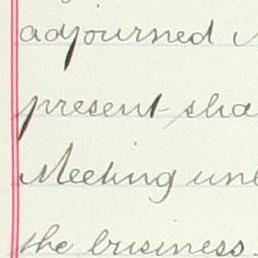 adjourned
present sha
Meeting un
the business.